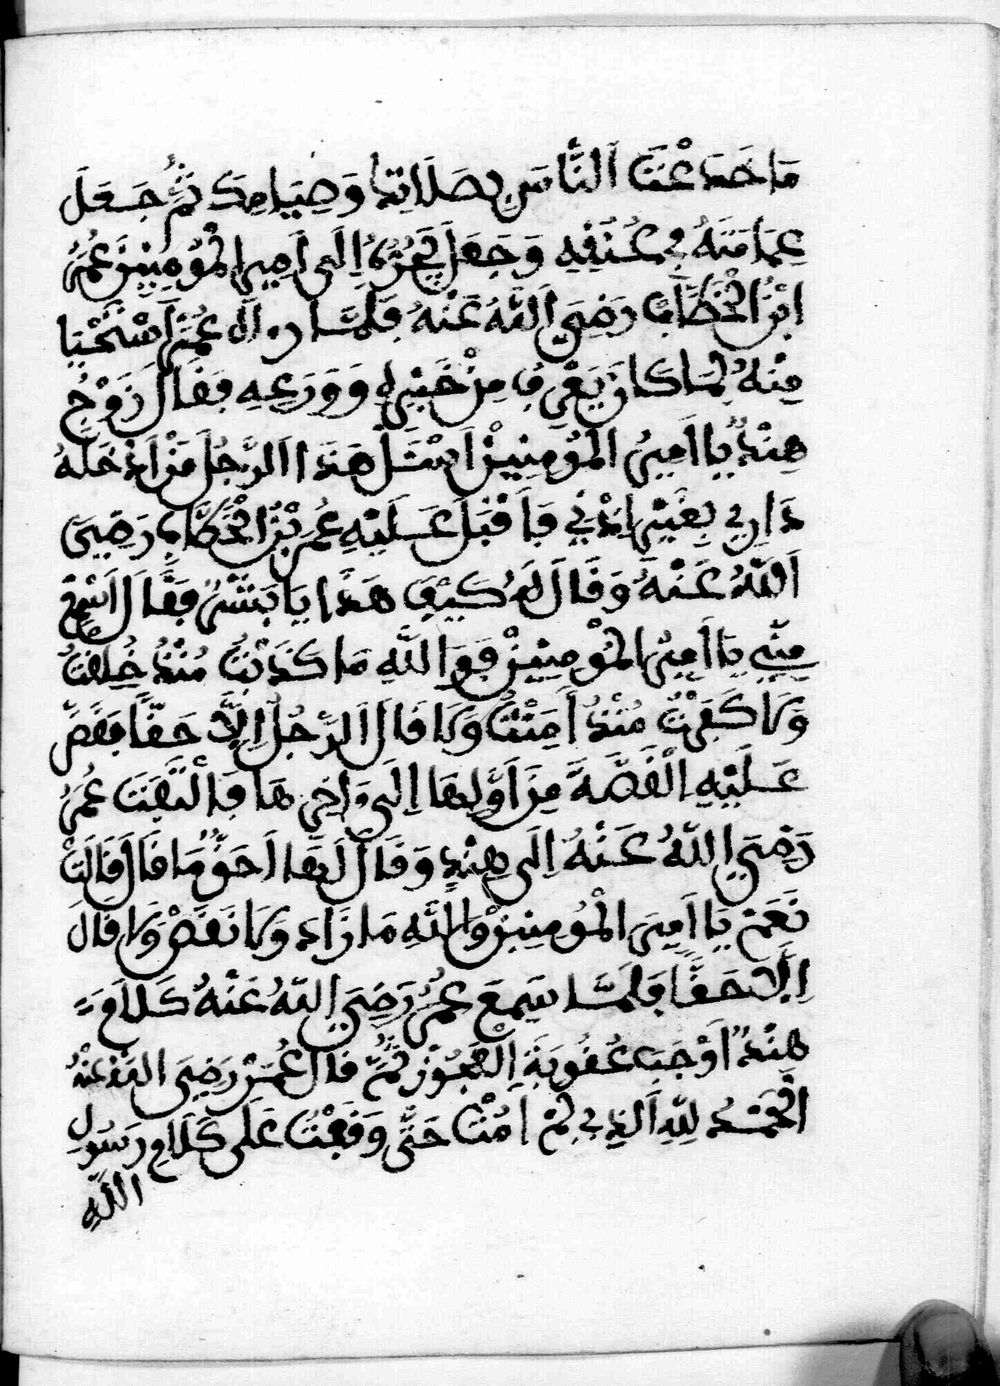 مَا خَدَعْتَ اَلنَّاسَ بِصَلَاتِكَ وَصِيَامِكَ ثُمَّ جَعَلَ
عِمَامَتَهُ فِي عُنُقِهِ وَجَعَلَ يَجُرُّهُ اِلَى اَمِيرِ الْمُؤْمِنِينَ عُمَرُ
ابْنُ الْخَطَّابِ رَضِيَ اَللَّهُ عَنْهُ فَلَمَّا رءاه عُمَرُ اَسْتَحْيَا
مِنْهُ لِمَا كَانَ يَعْرِفُ مِنْ خَيْرِهِ وَوَرَعِهِ فَقَالَ زَوْجُ
هِنْدٌ يَا اَمِيرَ الْمُؤمِنِينَ اَسْئَلْ هَذَا الرَّجُلَ مَنْ اَدْخَلَهُ
دَارِي بِغَيْرِ اِذْنِي فَأَقْبَلَ عَلَيْهِ عُمَرُ بْنُ الْخَطَّابِ رَضِيَ
اَللَّهُ عَنْهُ وَقَالَ لَهُ كَيْفَ هَذَا يَا بِشْرُ فَقَالَ اَسْمَعْ
مِنِّي يَا اَمِيرَ الْمُؤْمِنِينَ فَوَاللَّهِ مَا كَذَبْتُ مُنْذُ خُلِقْتُ
وَلَا كَفَرْتُ مُنْذُ اَمَنْتُ وَلَا قَالَ اَلرَّجُلُ اِلَّا حَقًّا فَقَصَّ
عَلَيْهِ الْقَصَّةَ مِنَ اَوَّلِهَا اِلَى ءَاخِرِهَا فَالْتَفَتَ عُمَرُ
رَضِيَ اللَّهُ عَنْهُ اِلَى هِنْدٍ وَقَالَ لَهَا اَحَقٌّ مَا قَالَ قَالَتْ
نَعَمْ يَا اَمِيرَ الْمُؤمِنِينَ وَاللَّهِ مَا زَادَ وَلَا نَقَصَ وَلَا قَالَ
اِلَّا حَقًّا فَلَمَّا سَمِعَ عُمَرُ رَضِيَ اللَّهُ عَنْهُ كَلَامَ
هِنْدٌ اَوْجَبَ عُقُوبَةَ اَلْعَجُوزِ ثُمَّ قَالَ عُمَرُ رَضِيَ اللَّهُ عَنْهُ
الْحَمْدُ لِلَّهِ اَلذِي لَمْ اَمُتْ حَتَّى وَقَفْتُ عَلَى كَلَامِ رَسُولِ
اللَّهِ